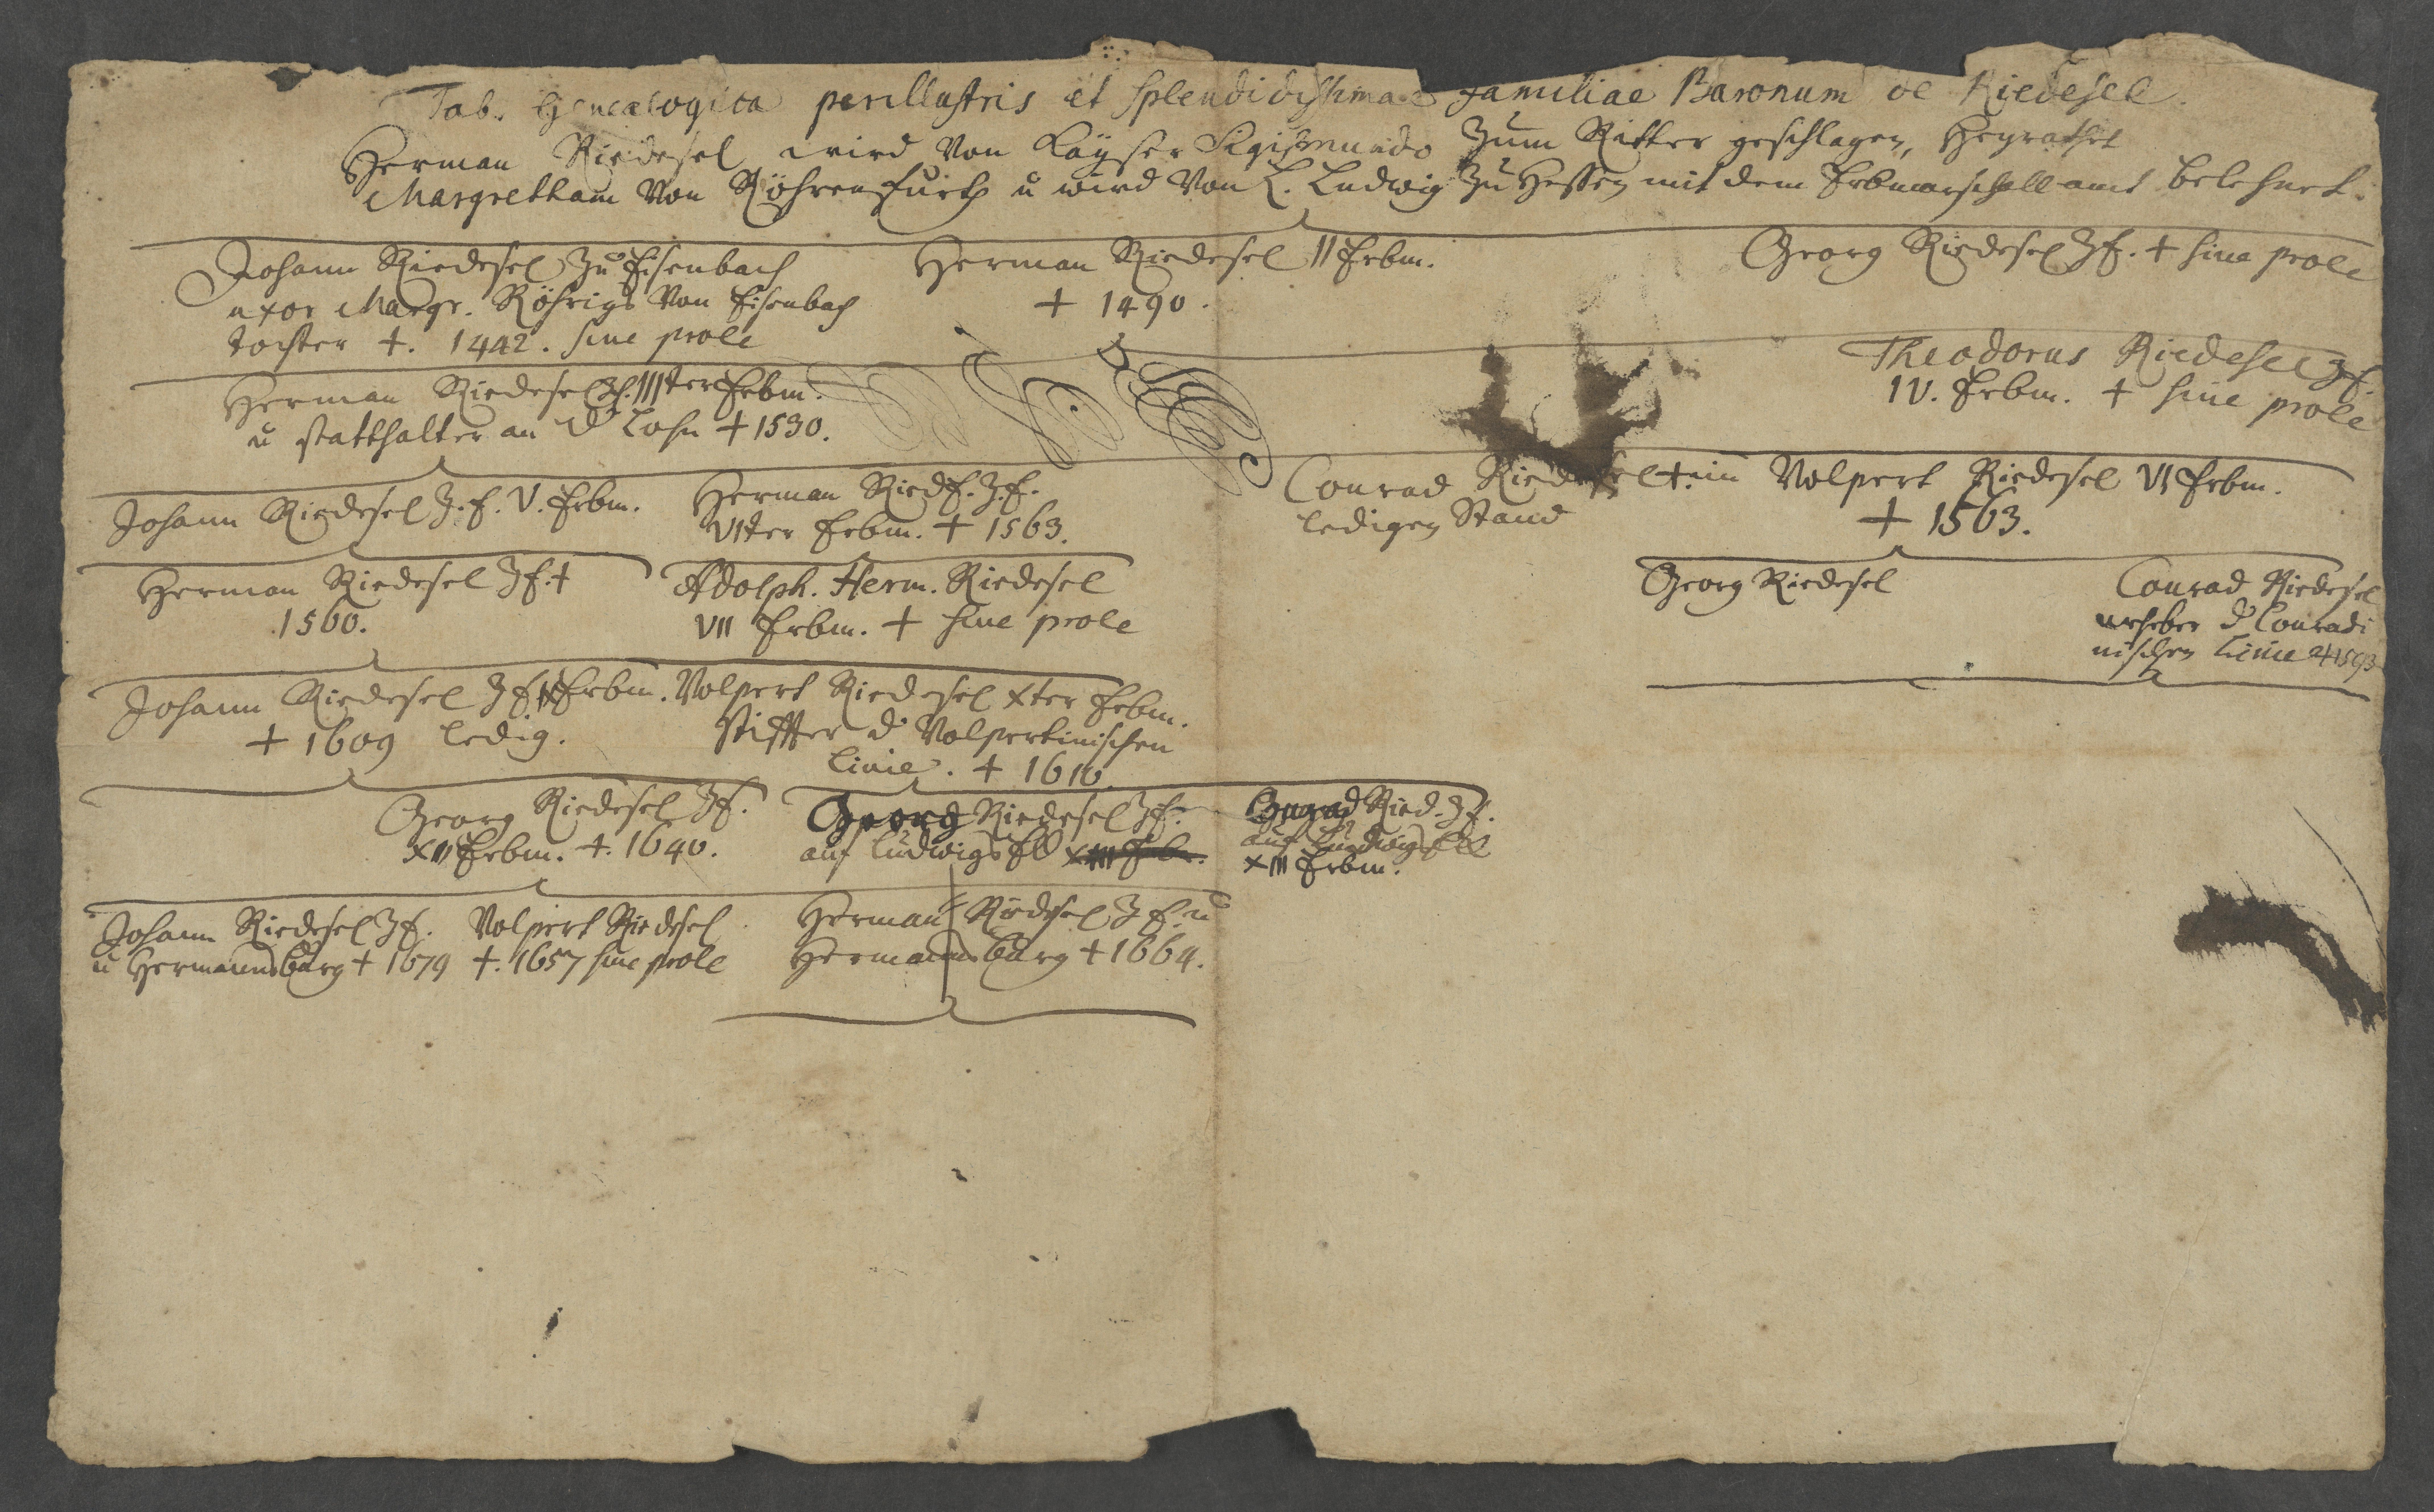 Tab. Genealogica perillustris et splendidissimae familiae Baronum de Riedesel.
Herman Riedesel wird von Kayser Sigismundo zum Ritter geschlagen, heyrathet
Margretham von Röhrenfurth u wird von L. Ludwig zu Hessen mit dem Erbmarschall amt belehnet.
Johann Riedesel zu Eisenbach
uxor Margr. Röhrigs von Eisenbach
tochter †. 1442. sine prole
Herman Riedesel II Erbm.
† 1490.
Georg Riedesel Z E. † sine prole
Herman Riedesel Z E. IIIter Erbm.
u statthalter an d Lohn † 1530.
Theodorus Riedesel Z E.
IV. Erbm. † sine prole
Johann Riedesel Z. E. V. Erbm.
Herman Ried E. Z. E.
VIter Erbm. † 1563.
Conrad Riedesel †. im
ledigen Stand
Volpert Riedesel VI Erbm.
† 1563.
Herman Riedesel Z E. †
1560.
Adolph. Herm. Riedesel
VII Erbm. † sine prole
Georg Riedesel
Conrad Riedesel
urheber d Conradi
nischen Linie † 1593
Johann Riedesel Z E. IX Erbm.
† 1609 ledig.
Volpert Riedesel Xter Erbm.
Stiffter d Volpertinischen
Linie. † 1610.
Georg Riedesel Z E.
XII Erbm. †. 1640.
Georg Riedesel Z E.
auf Ludwigs E XIII Erbm.
Conrad Ried. Z E.
auf Ludwigs
XIII Erbm.
Johann Riedesel Z E.
u Hermansburg † 1679
Volpert Riedesel
†. 1657 sine prole
Herman Riedesel Z E. u
Hermansburg † 1664.